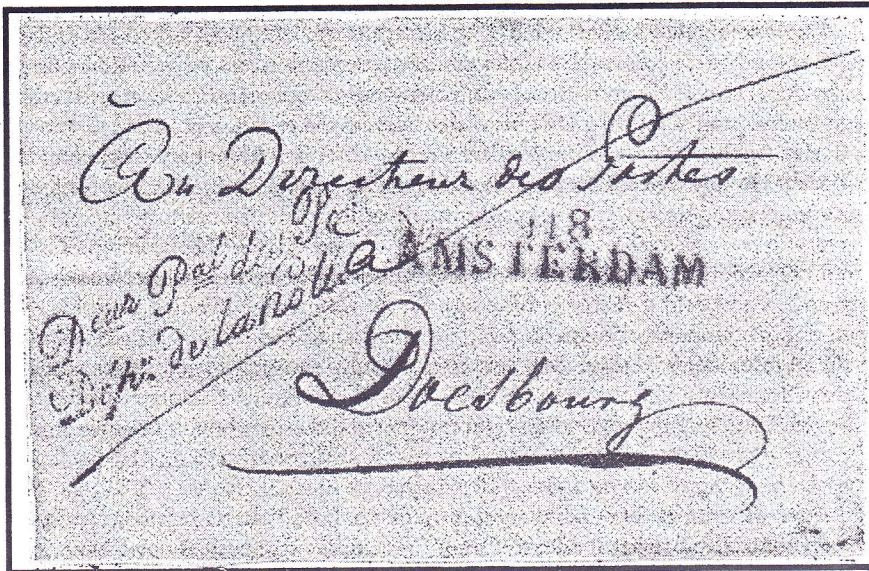 Au Directeur des Postes
118
AMSTERDAM
Deur Pal des Pes
de la Hollde
Doesbourg